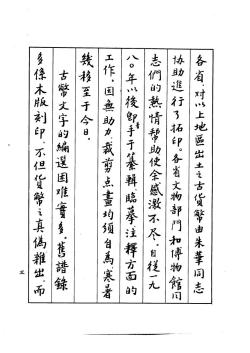 各省对以上地區出土之古貨幣由朱華同志
協助進行了拓印。各省文物部門和博物館同
志們的熱情幫助使余感激不尽，自從一九
八〇年以後即手于纂輯臨摹注釋方面的
工作，因無助力，裁剪点畫均須自為，寒暑
幾移至于今日。
古幣文字的編選困難實多，舊譜錄
多係木版刻印，不但貨幣之真偽雜出，而